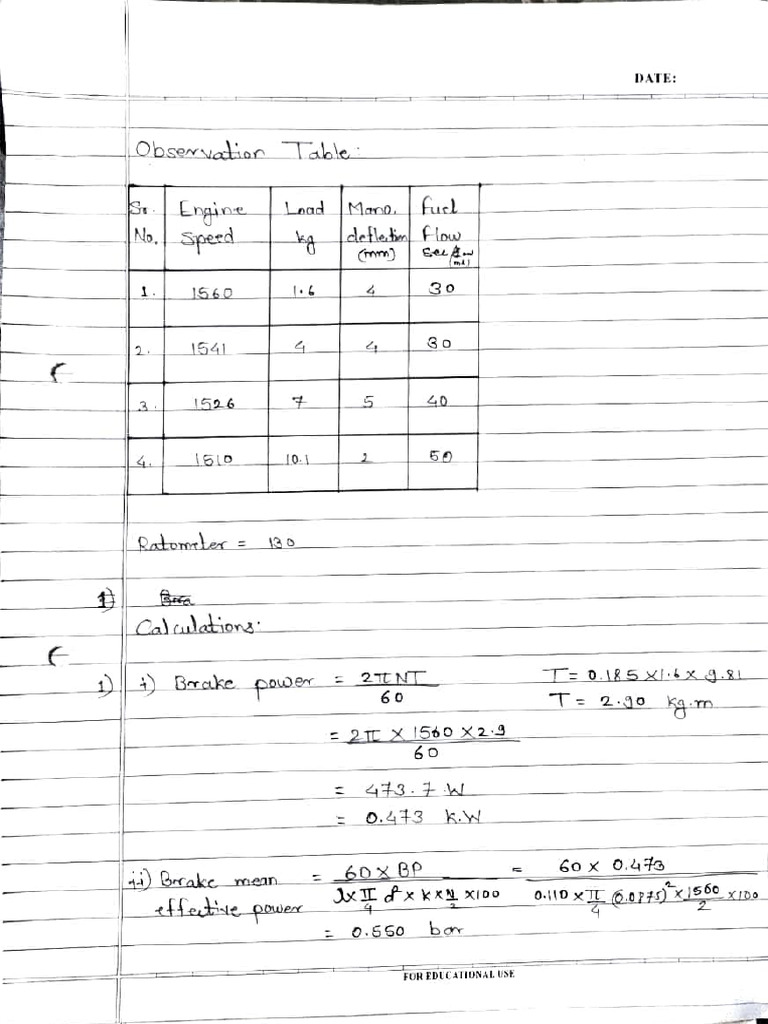 DATE:
Observation Table:
Sr. No. | Engine Speed | Load kg | Mano. deflection (mm) | Fuel flow sec (ml)
1. | 1560 | 1.6 | 4 | 30
2. | 1541 | 4 | 4 | 30
3. | 1526 | 7 | 5 | 40
4. | 1510 | 10.1 | 2 | 50
Ratometer = 130
1)
Calculations:
1) i) Brake power = 2πNT/60 T = 0.185 × 1.6 × 9.81
T = 2.90 kg.m
= 2π × 1560 × 2.9/60
= 473.7 W
= 0.473 K.W
ii) Brake mean effective power = 60 × BP / (L × π/4 d² × k × N/2 × 100) = 60 × 0.473 / (0.110 × π/4 (0.0875)² × 1560/2 × 100)
= 0.550 bar
FOR EDUCATIONAL USE